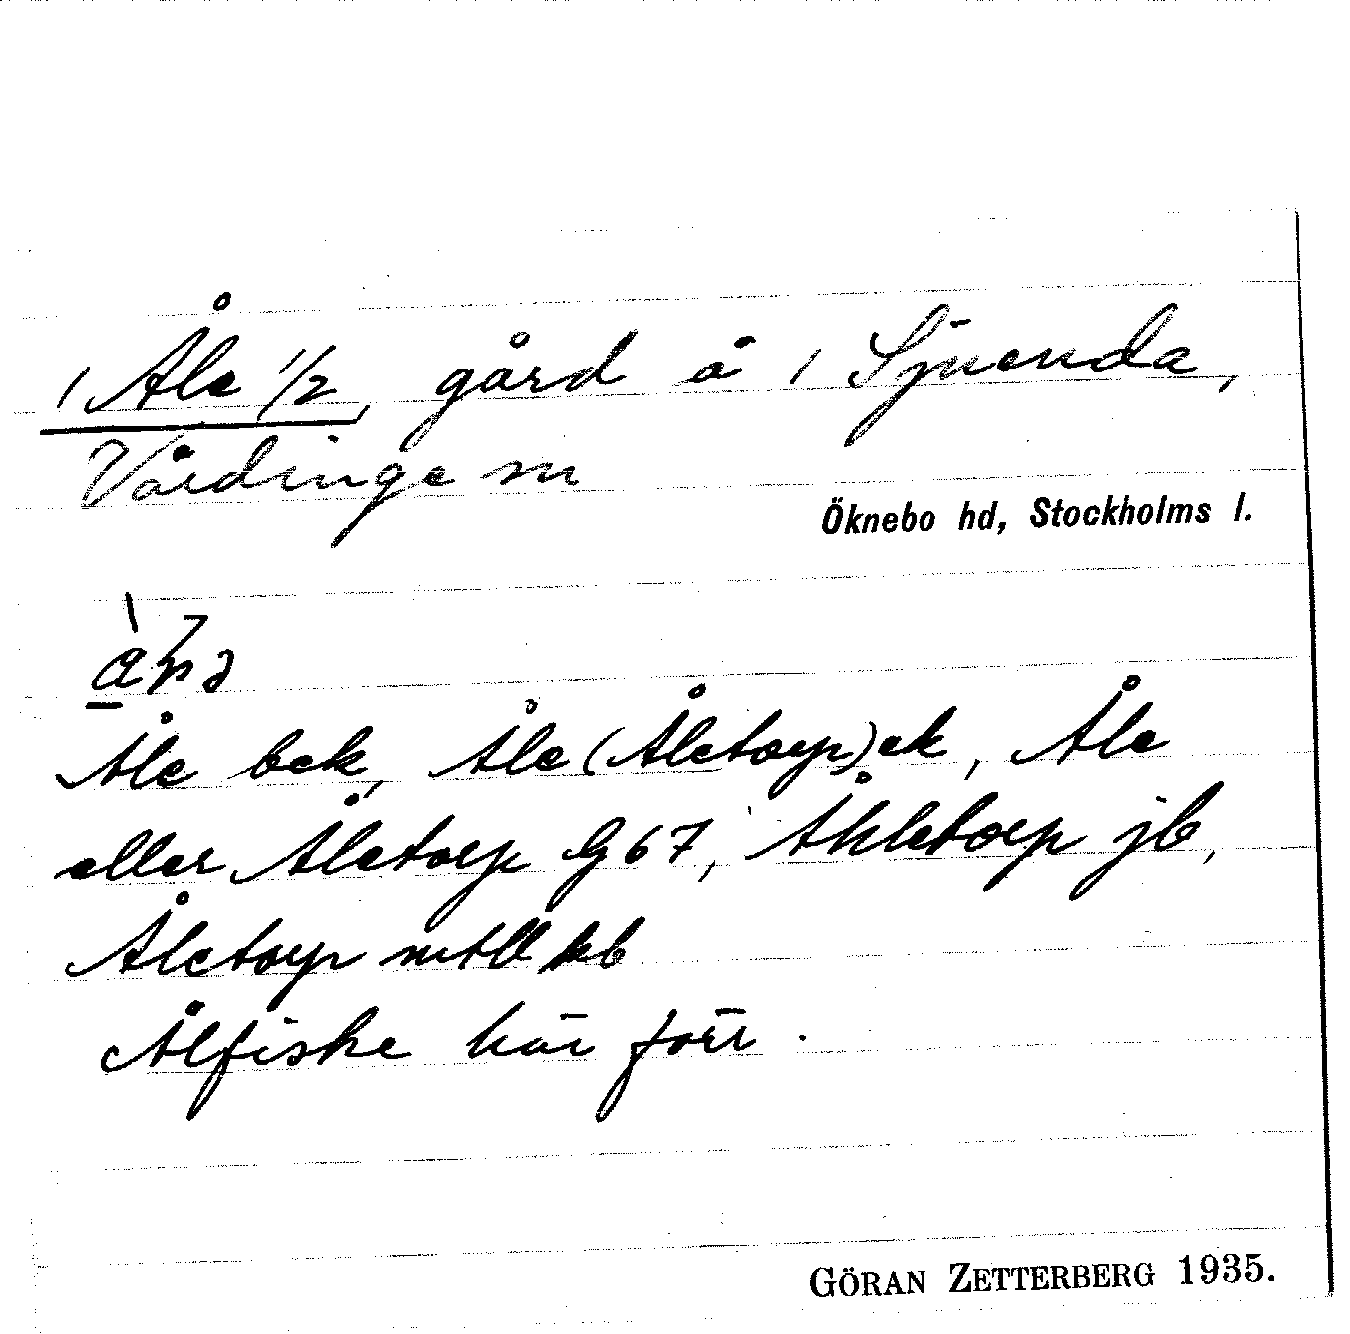 / Åle 1/2, gård å / Sjuenda,
Vårdinge sn
Öknebo hd, Stockholms l.
Åle bek, Åle (Åletorp) ek, Åle
eller Åletorp G 67, Åhletorp jb,
Åletorp mtll kb
Ålfiske här förr.
GÖRAN ZETTERBERG 1935.